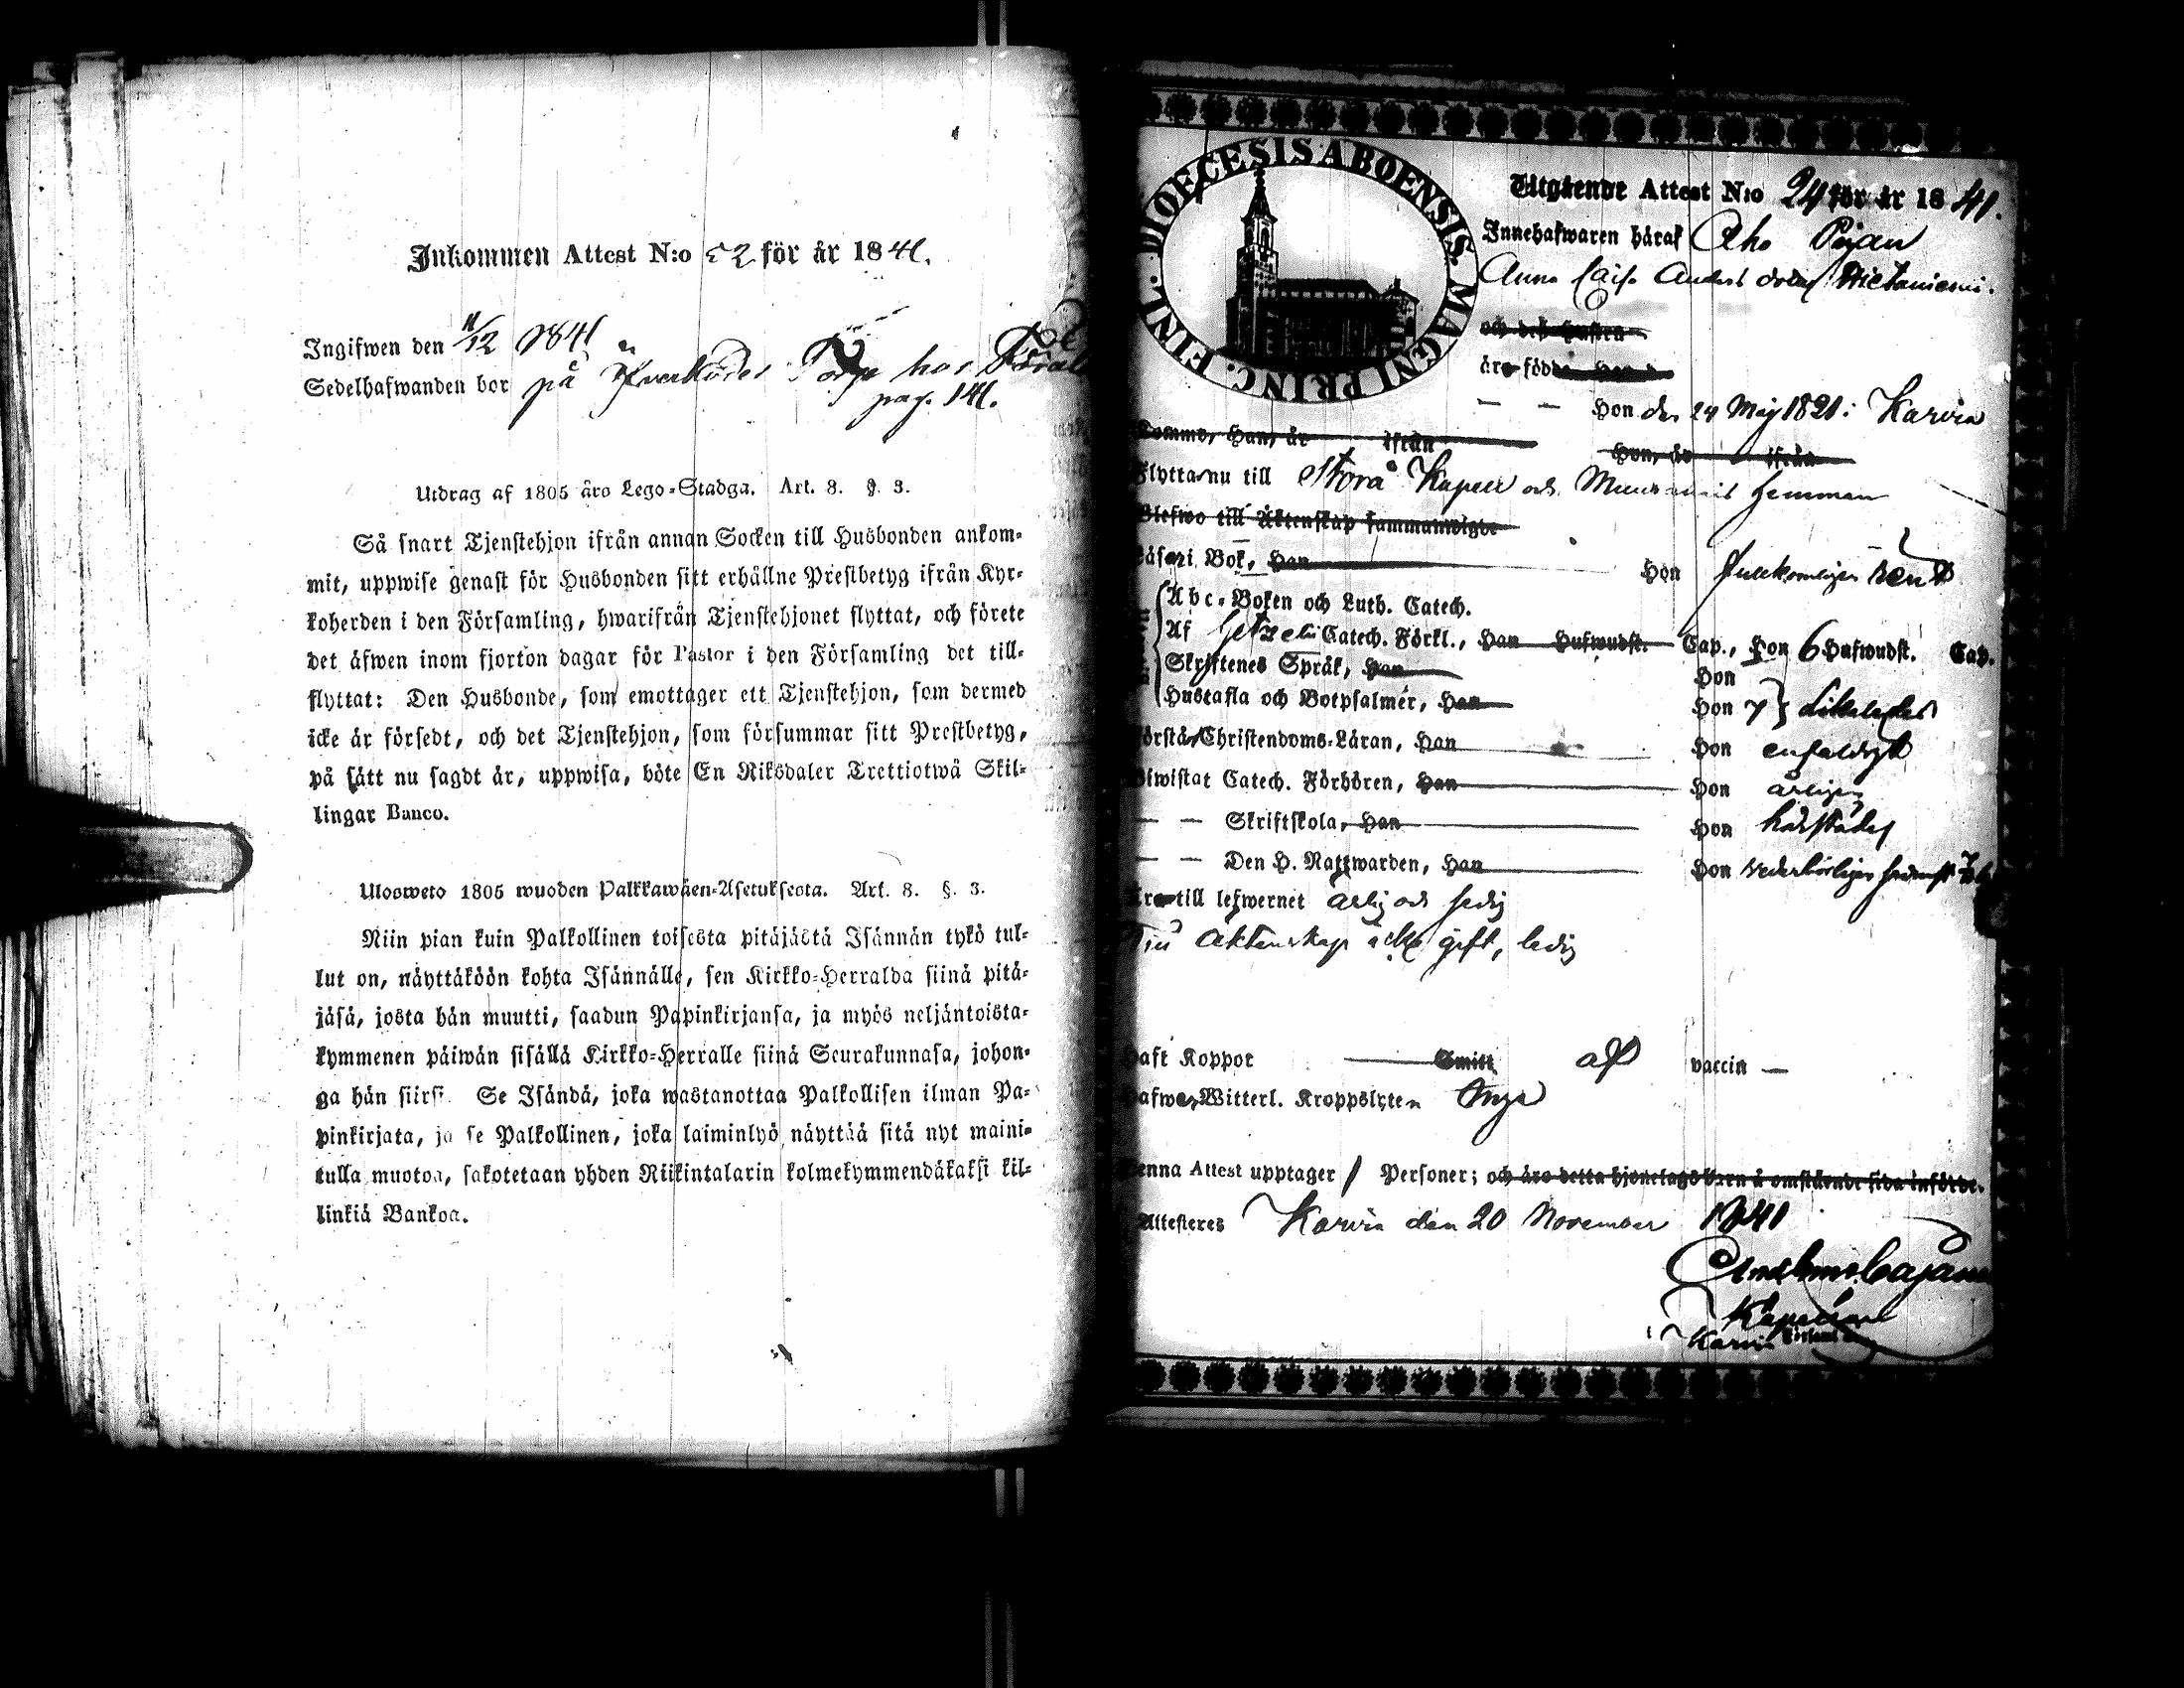 Inkommen Attest N:o 52 för år 1841.
Ingifwen den 11/12 1841
Sedelhafwanden bor på Torp hos
pag. 141.
Utdrag af 1805 års Lego-Stadga. Art. 8. §. 3.
Så snart Tjenstehjon ifrån annan Socken till Husbonden ankom-
mit, uppwise genast för Husbonden sitt erhållne Prestbetyg ifrån Kyr-
koherden i den Församling, hwarifrån Tjenstehjonet flyttat, och förete
det äfwen inom fjorton dagar för Pastor i den Församling det till-
flyttat: Den Husbonde, som emottager ett Tjenstehjon, som dermed
icke är försedt, och det Tjenstehjon, som försummar sitt Prestbetyg,
på sätt nu sagdt är, uppwisa, böte En Riksdaler Trettiotwå Skil-
lingar Banco.
Ulosweto 1805 wuoden Palkkawäen-Asetuksesta. Art. 8. §. 3.
Niin pian kuin Palkollinen toisesta pitäjästä Isännän tykö tul-
lut on, näyttäköön kohta Isännälle, sen Kirkko-Herralda siinä pitä-
jäsä, josta hän muutti, saadun Papinkirjansa, ja myös neljäntoista-
kymmenen päiwän sisällä Kirkko-Herralle siinä Seurakunnasa, johon-
ga hän siirsi. Se Isändä, joka wastanottaa Palkollisen ilman Pa-
pinkirjata, ja se Palkollinen, joka laiminlyö näyttää sitä nyt maini-
tulla muotoa, sakotetaan yhden Riikintalarin kolmekymmendäkaksi kil-
linkiä Bankoa.
DIOECESIS ABOENSIS. MAGNI PRINC. FINL.
Utgående Attest N:o 24 för år 1841.
Innehafwaren häraf Aho Pigan
Anna Caisa Anders dotter
och deß hustru
äro födde Han
— — Hon den 24 Maj 1821 i Karvia
Komne, Han, år ifrån Hon, år ifrån
Flytta nu till Storå Kapell och hemman
Blefwo till Äktenskap sammanwigde
Läsa i Bok, Han Hon fullkomligen rent
Abc-Boken och Luth. Catech.
Af Catech. Förkl., Han Hufwudst. Cap., Hon 6 Hufwudst. Cap.
Skriftenes Språk, Han Hon
Hustafla och Botpsalmer, Han Hon 7 likaledes
Förstå Christendoms-Läran, Han Hon enfaldigt
Biwistat Catech. Förhören, Han Hon årligen
— — Skriftskola, Han Hon härstädes
— — Den H. Nattwarden, Han Hon wederbörligen
Äro till lefwernet ärlig och sedig
Till Äktenskap icke gift, ledig
Haft Koppor Smitt af vaccin —
Hafwa Witterl. Kroppslyten Inga
Denna Attest upptager 1 Personer; och äro detta hjonelags barn å omstående sida införde.
Attesteras Karvia den 20 November 1841
Cajanus
Kapellan
Karvia